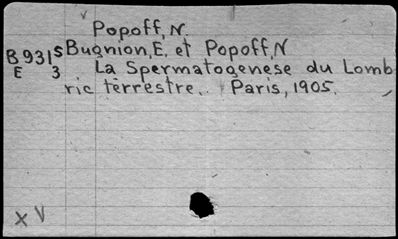 Popoff, N.
B931S Bugnion, E. et Popoff, N
E 3 La Spermatogenese du Lomb
ric terrestre. Paris, 1905.
X V